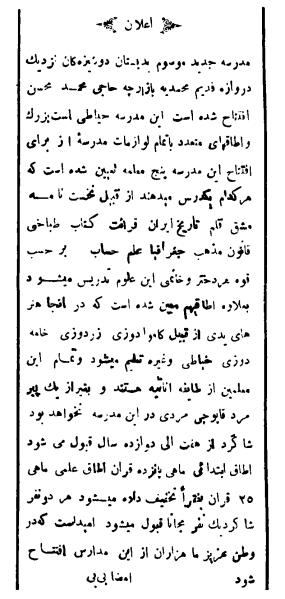 اعلان
مدرسه جدید موسوم بدبستان دوشیزه‌کان نزدیك
دروازه قدیم محمدیه بازارچه حاجی محمد محسن
افتتاح شده است این مدرسه حیاطی است بزرك
و اطاقهای متعدد با تمام لوازمات مدرسهٔ از برای
افتتاح این مدرسه پنج معلمه تعیین شده است که
هر کدام یکدرس میدهند از قبیل نخست نامـه
مشق قلم تاریخ ایران قرائت کتاب طباخی
قانون مذهب جغرافیا علم حساب بر حسب
قوه هر دختر و خانمی این علوم تدریس میشود
بعلاوه اطاقهم معین شده است که در آنجا هنر
های یدی از قبیل کاموادوزی زردوزی خامه
دوزی خیاطی وغیره تعلیم میشود وتمام این
معلمین از طایفه اناثیه هستند و بغیر از یك پیر
مرد قاپوچی مردی در این مدرسه نخواهد بود
شاکرد از هفت الی دوازده سال قبول می شود
اطاق ابتدائی ماهی پانزده قران اطاق علمی ماهی
۲۵ قران بفقرأ تخفیف داده میشود هر دو نفر
شاکرد یك نفر مجانا قبول میشود امیداست که در
وطن عزیز ما هزاران از این مدارس افتتـاح
شود امضا بی‌بی